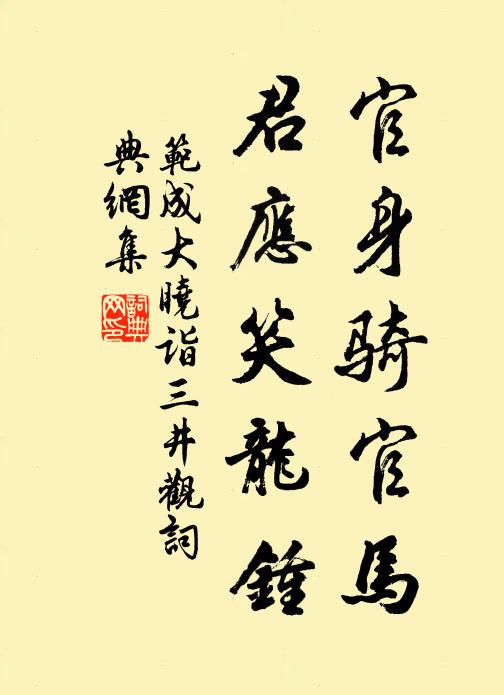 官身騎官馬
君應笑龍鍾
範成大曉詣三井觀詞
典網集
詞典網印